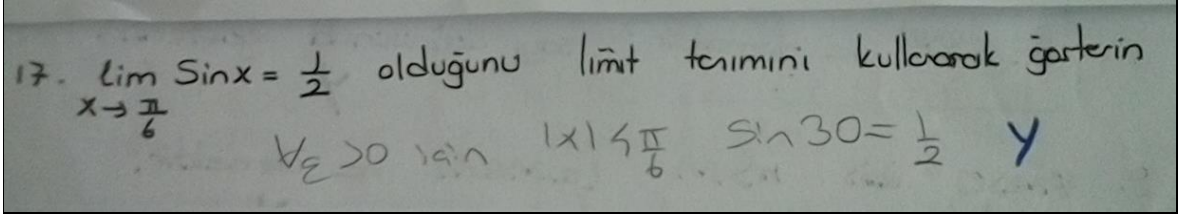 17. lim Sinx = 1/2 olduğunu limit tanımını kullanarak gösterin
x→π/6
∀ε >0 için |x| < π/6 Sin30 = 1/2 Y